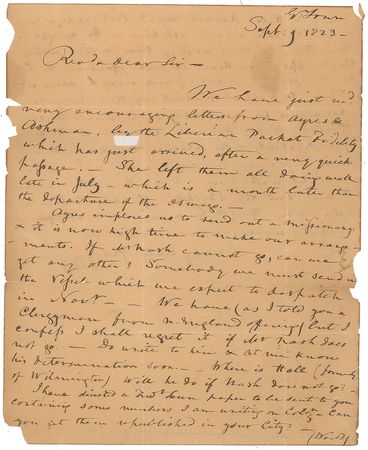 Geo Town
Sept. 9 1823 -
Revd & dear Sir -
We have just rec'd
very encouraging letters from Ayres &
Ashmun, by the Liberian Packet Fidelity
which has just arrived, after a very quick
passage. - She left them all doing well
late in July - which is a month later than
the departure of the Oswego. -
Ayres employs us to send out a missionary
& it is now high time to make our arrange-
ments. If Mr Nash cannot go, can we
get any other? Somebody we must send in
the Vessel which we expect to despatch
in Novr - We have (as I told you a
Clergyman from N. England offering) but I
confess I shall regret it if Mr Nash does
not go. - Do write to him & let me know
his determination soon. - Where is Hall (formerly
of Wilmington) Will he do if Nash does not go?
I have directed a Geo Town paper to be sent to you
containing some numbers I am writing on Colonizn Can
you get them republished in your City? -